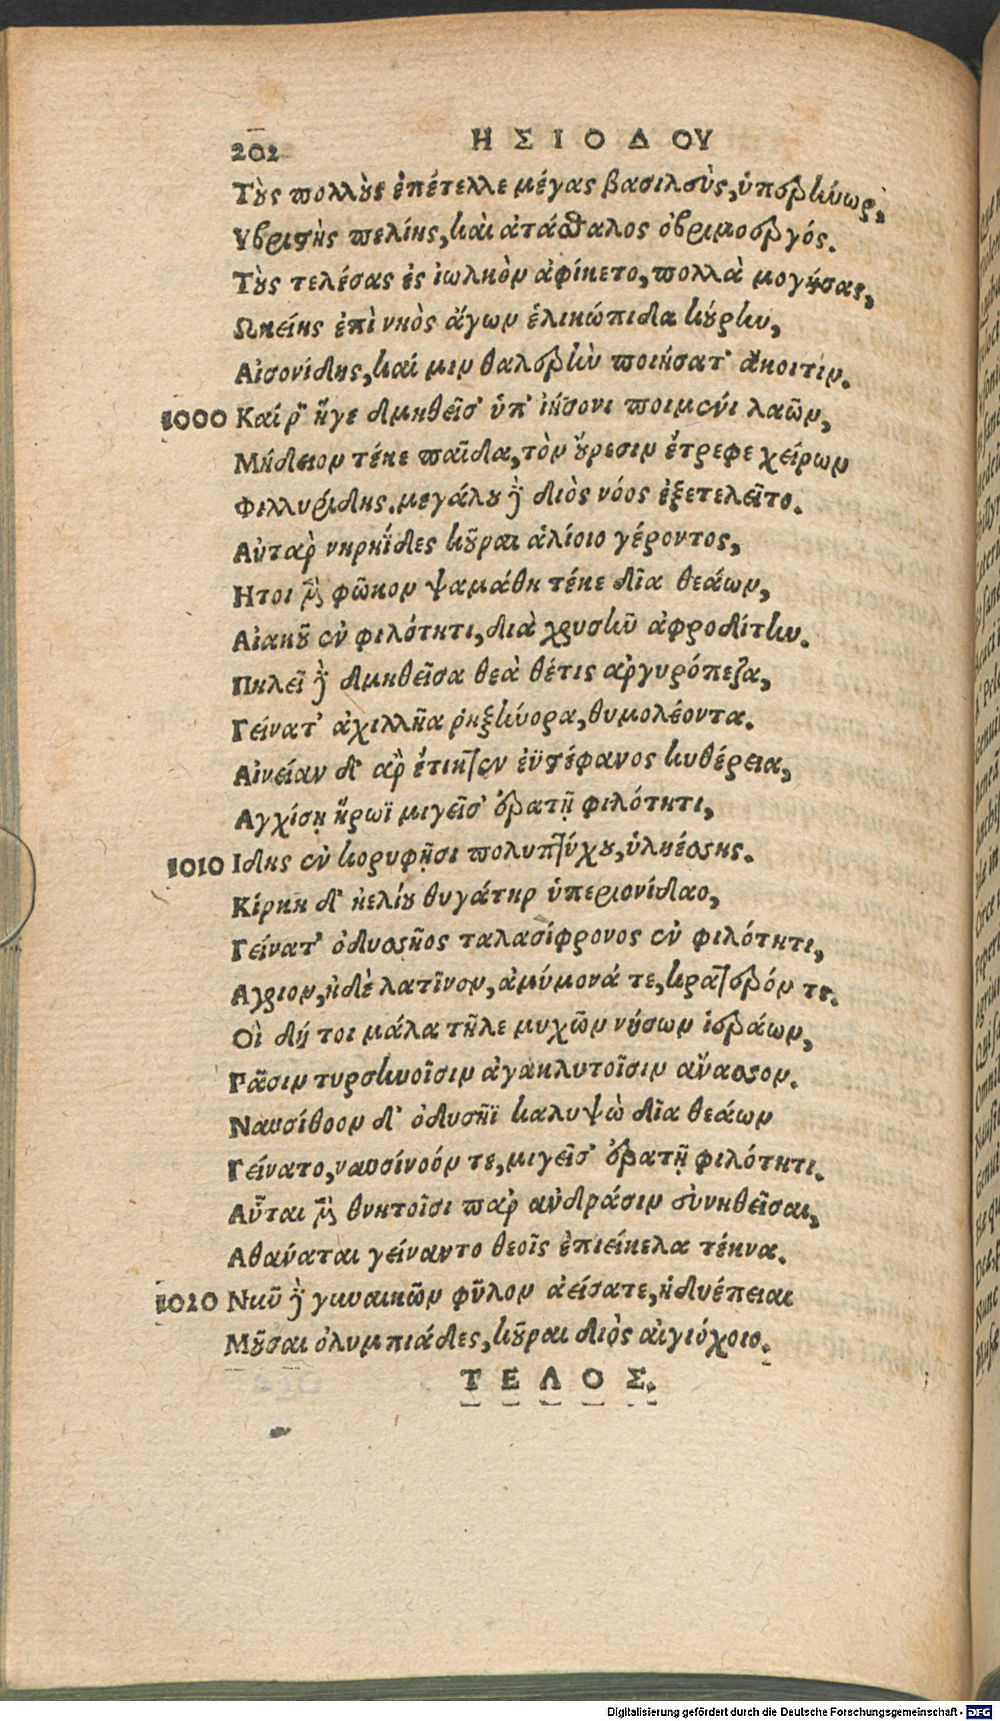 202 ΗΣΙΟΔΟΥ
Τοὺς πολλοὺς ἐπέτελλε μέγας βασιλεὺς, ὑπερήνωρ,
Υβριστὴς πελίης, καὶ ἀτάσθαλος ὀβριμοεργός.
Τοὺς τελέσας ἐς ἰωλκὸν ἀφίκετο, πολλὰ μογήσας,
Ωκείης ἐπὶ νηὸς ἄγων ἑλικώπιδα κούρην,
Αἰσονίδης, καί μιν θαλερὴν ποιήσατ' ἄκοιτιν.
1000 Καί ῥ' ἥγε δμηθεῖσ' ὑπ' ἰήσονι ποιμένι λαῶν,
Μήδειον τέκε παῖδα, τὸν οὔρεσιν ἔτρεφε χείρων
Φιλλυρίδης. μεγάλου δὲ διὸς νόος ἐξετελεῖτο.
Αὐτὰρ νηρηΐδες κοῦραι ἁλίοιο γέροντος,
Ητοι μὲν φῶκον ψαμάθη τέκε δῖα θεάων,
Αἰακοῦ ἐν φιλότητι, διὰ χρυσῆν ἀφροδίτην.
Πηλεῖ δὲ δμηθεῖσα θεὰ θέτις ἀργυρόπεζα,
Γείνατ' ἀχιλλῆα ῥηξήνορα, θυμολέοντα.
Αἰνείαν δ' ἂρ ἔτικτεν ἐϋστέφανος κυθέρεια,
Αγχίσῃ ἥρωϊ μιγεῖσ' ἐρατῇ φιλότητι,
1010 Ιδης ἐν κορυφῇσι πολυπτύχου, ὑληέσσης.
Κίρκη δ' ἠελίου θυγάτηρ ὑπεριονίδαο,
Γείνατ' ὀδυσσῆος ταλασίφρονος ἐν φιλότητι,
Αγριον, ἠδὲ λατῖνον, ἀμύμονά τε, κρατερόν τε.
Οἳ δή τοι μάλα τῆλε μυχῶν νήσων ἱεράων,
Πᾶσιν τυρσηνοῖσιν ἀγακλυτοῖσιν ἄνασσον.
Ναυσίθοον δ' ὀδυσῆϊ καλυψὼ δῖα θεάων
Γείνατο, ναυσίνοόν τε, μιγεῖσ' ἐρατῇ φιλότητι.
Αὗται μὲν θνητοῖσι παρ' ἀνδράσιν εὐνηθεῖσαι,
Αθάναται γείναντο θεοῖς ἐπιείκελα τέκνα.
1020 Νῦν δὲ γυναικῶν φῦλον ἀείσατε, ἡδυέπειαι
Μοῦσαι ὀλυμπιάδες, κοῦραι διὸς αἰγιόχοιο.
ΤΕΛΟΣ.
Digitalisierung gefördert durch die Deutsche Forschungsgemeinschaft - DFG